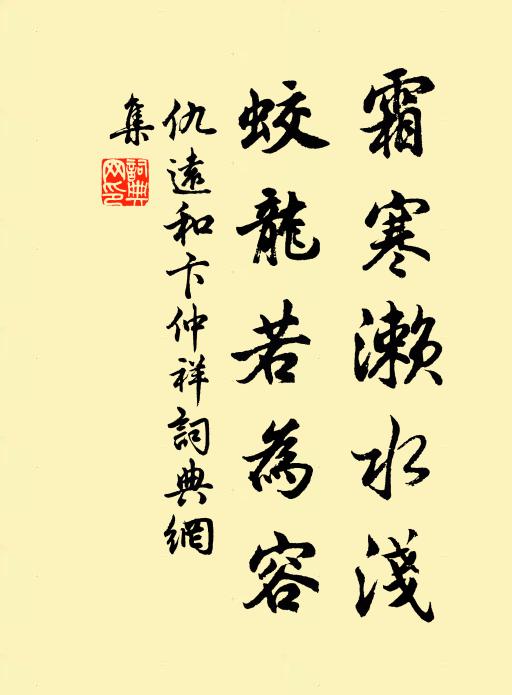 霜寒濑水淺
蛟龍若為容
仇遠和卞仲祥詞典網
集
詞典網印